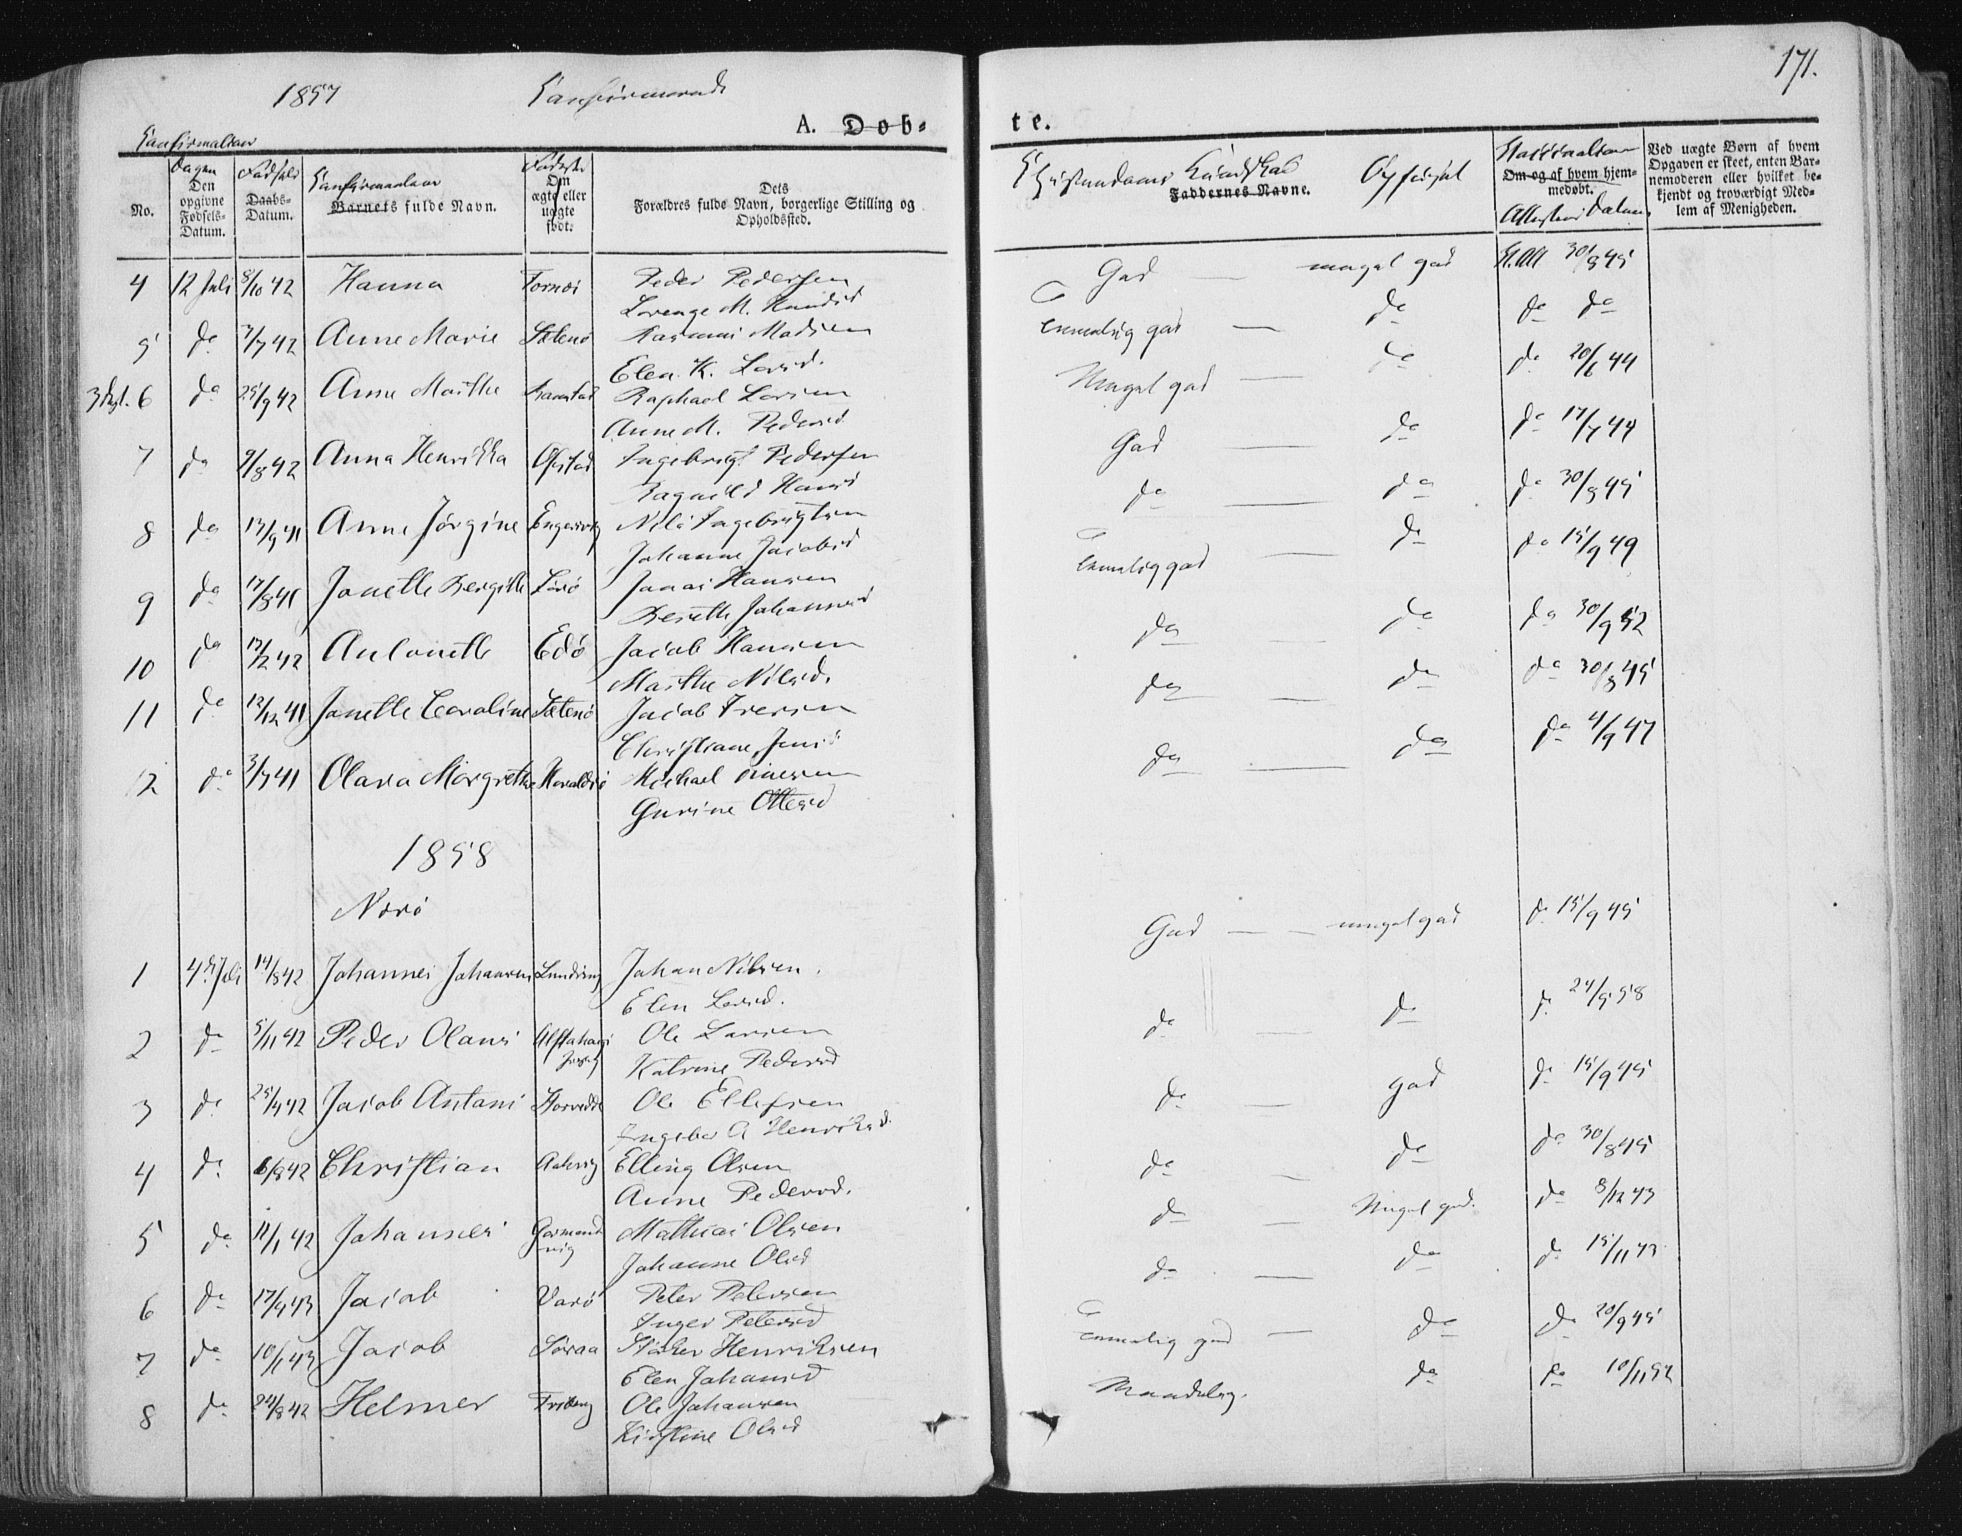 171.
1857 Confirmerede
A. Døb=te.
Confirmation
Dagen
Den opgivne Fødsels-Datum.
Fødsels
Daabs-Datum.
No.
Confirmantens
Barnets fulde Navn.
Fødested
Om ægte eller uægte født.
Dets
Forældres fulde Navn, borgerlige Stilling og Opholdssted.
Christendoms Kundskab
Faddernes Navne.
Opførsel
Vaccination
Om og af hvem hjemmedøbt.
Attestens Datum
Ved uægte Børn af hvem Opgaven er skeet, enten Barnemoderen eller hvilket bekjendt og troværdigt Medlem af Menigheden.
4 12 Juli 8/10 42 Hanna Fornæs Peder Pedersen God — meget god 30/8 45
Lorenze M.
5 do 7/7 42 Anne Marie Sætenø Rasmus Madsen Temmelig god — do do do
Elen K. Larsd.
6 do 25/9 42 Anne Marthe Ramstad Raphael Larsen Meget god — do do 20/6 44
Anne M. Pedersd
7 do 9/8 42 Anna Henrikka Ofstad Ingebrigt Pedersen God — do do 17/7 44
Ragnild Hansd
8 do 13/9 41 Anne Jørgine Engesvig Nils Ingebrigtsen do — do do 30/8 45
Johanne Jacobsd
9 do 17/8 41 Janette Bergitte Lørø Jonas Hansen Temmelig god — do do 15/9 49
Berette Johannesd
10 do 13/2 42 Antonette Edø Jacob Hansen do — do do 30/9 52
Marthe Nilsd.
11 do 12/12 41 Janette Caroline Sætenø Jacob Iversen do — do do 30/8 45
Christiane Jensd
12 do 3/7 41 Olava Margrethe Michael do — do do 4/9 47
Gurine Ottersd
1858
Nærø
1 4d. Juli 14/8 42 Johannes Johansen Lundring Johan Nilsen. God — — meget god do 15/9 45
Elen Larsd.
2 do 5/11 42 Peder Olaus Ole Larsen do — do do 24/5 58
Katrine Pedersd
3 do 25/4 42 Jacob Antoni Ole Ellefsen do — god do 15/9 45
Ingebor A Henriksd.
4 do 6/8 42 Christian Aakvig Elling Olsen do — do do 30/8 45
Anne Pedersd.
5 do 11/1 42 Johannes Mathias Olsen do — Meget god. do 8/12 43
Johanne Olsd
6 do 17/4 43 Jacob Varø Peter Petersen do — do do 15/11 43
Inger Petersd
7 do 10/1 43 Jacob Søraa Henriksen Temmelig god — do do 20/9 45
Elen Johansd
8 do 24/8 42 Helmer Ole Johansen Maadelig. do do 10/11 52
Kirstine Olsd